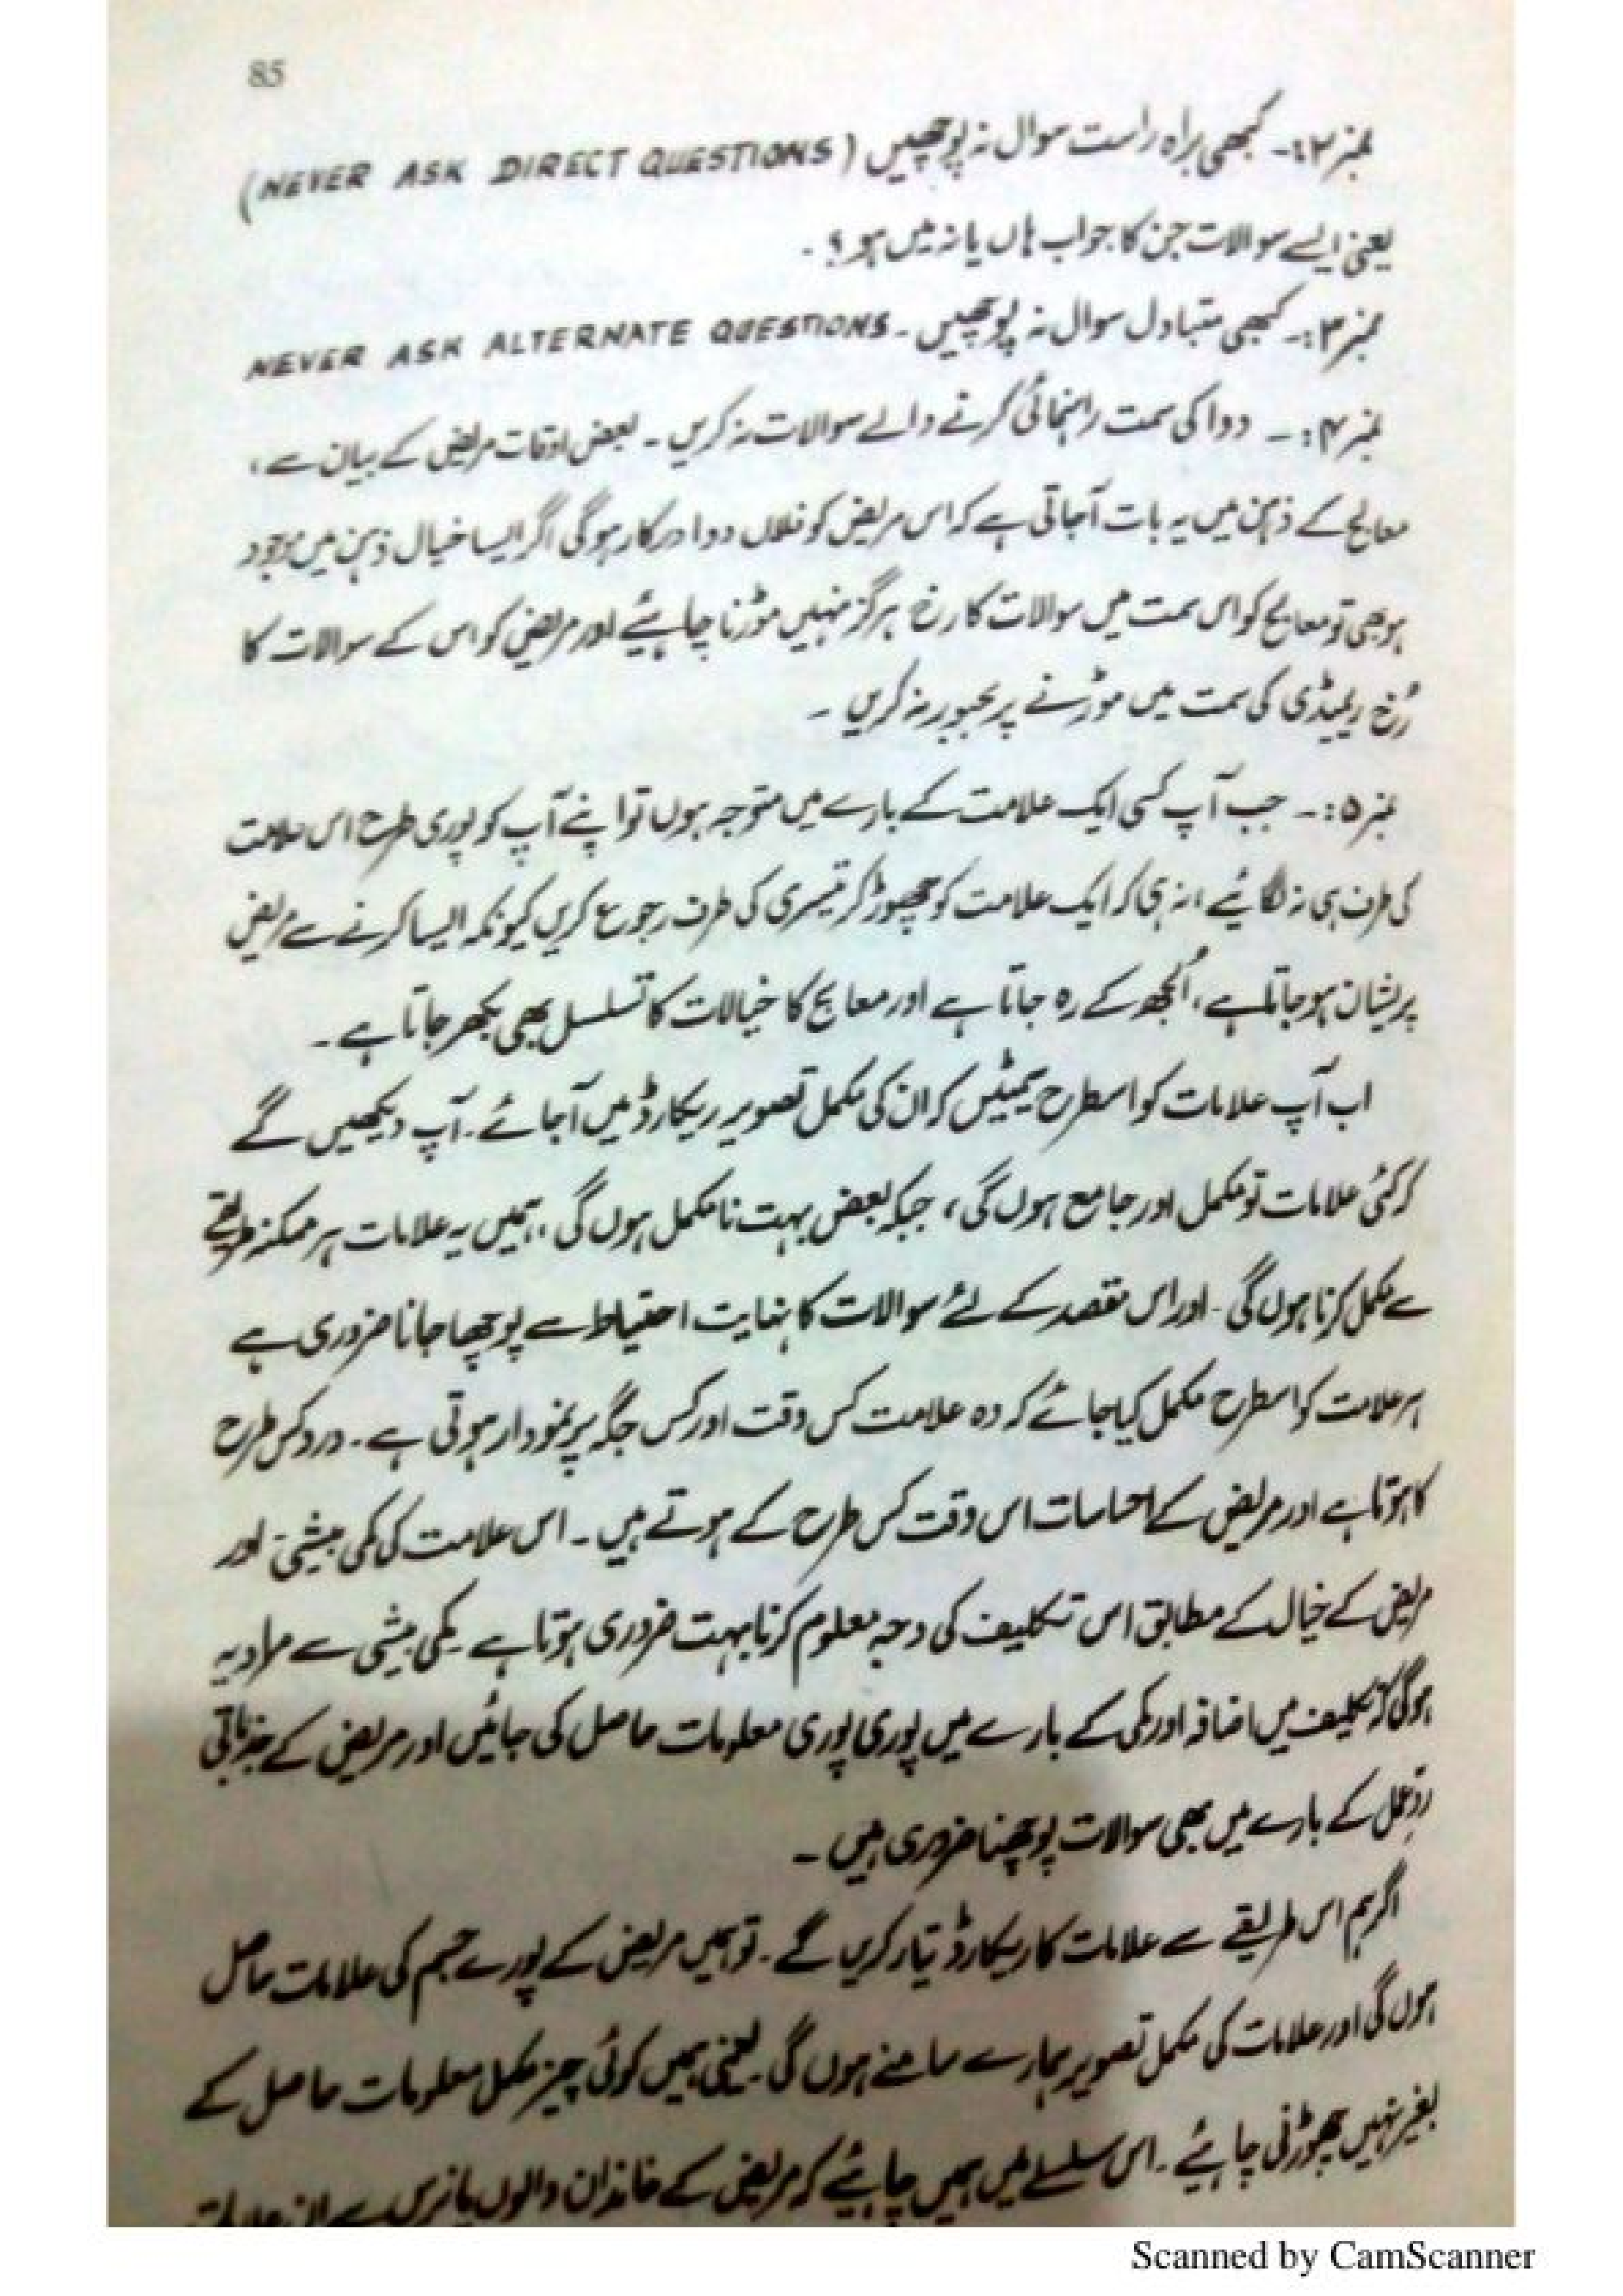 85
نمبر ۲:۔ کبھی براہ راست سوال نہ پوچھیں (NEVER ASK DIRECT QUESTIONS)
یعنی ایسے سوالات جن کا جواب ہاں یا نہ میں ہو؟۔
نمبر ۳:۔ کبھی متبادل سوال نہ پوچھیں۔ NEVER ASK ALTERNATE QUESTIONS
نمبر ۴:۔ دوا کی سمت راہنمائی کرنے والے سوالات نہ کریں۔ بعض اوقات مریض کے بیان سے،
معالج کے ذہن میں یہ بات آجاتی ہے کہ اس مریض کو فلاں دوا درکار ہوگی اگر ایسا خیال ذہن میں موجود
ہو بھی تو معالج کو اس سمت میں سوالات کا رخ ہرگز نہیں موڑنا چاہئیے اور مریض کو اس کے سوالات کا
رُخ ریمیڈی کی سمت میں موڑنے پر مجبور نہ کریں۔
نمبر ۵:۔ جب آپ کسی ایک علامت کے بارے میں متوجہ ہوں تو اپنے آپ کو پوری طرح اس علامت
کی طرف ہی نہ لگائیے، نہ ہی کہ ایک علامت کو چھوڑ کر تیسری کی طرف رجوع کریں کیونکہ ایسا کرنے سے مریض
پریشان ہو جاتا ہے، اُلجھ کے رہ جاتا ہے اور معالج کا خیالات کا تسلسل بھی بکھر جاتا ہے۔
اب آپ علامات کو اسطرح سمیٹیں کہ ان کی مکمل تصویر ریکارڈ میں آجائے۔ آپ دیکھیں گے
کہ کئی علامات تو مکمل اور جامع ہوں گی، جبکہ بعض بہت نامکمل ہوں گی، ہمیں یہ علامات ہر ممکنہ طریقے
سے مکمل کرنا ہوں گی۔ اور اس مقصد کے لئے سوالات کا نہایت احتیاط سے پوچھا جانا ضروری ہے
ہر علامت کو اسطرح مکمل کیا جائے کہ وہ علامت کس وقت اور کس جگہ پر نمودار ہوتی ہے۔ درد کس طرح
کا ہوتا ہے اور مریض کے احساسات اس وقت کس طرح کے ہوتے ہیں۔ اس علامت کی کمی بیشی اور
مریض کے خیال کے مطابق اس تکلیف کی وجہ معلوم کرنا بہت ضروری ہوتا ہے۔ کمی بیشی سے مراد یہ
ہوگی کہ تکلیف میں اضافہ اور کمی کے بارے میں پوری پوری معلومات حاصل کی جائیں اور مریض کے جذباتی
ردِّ عمل کے بارے میں بھی سوالات پوچھنا ضروری ہیں۔
اگر ہم اس طریقے سے علامات کا ریکارڈ تیار کریں گے۔ تو ہمیں مریض کے پورے جسم کی علامات حاصل
ہوں گی اور علامات کی مکمل تصویر ہمارے سامنے ہوں گی۔ یعنی ہمیں کوئی چیز مکمل معلومات حاصل کے
بغیر نہیں چھوڑنی چاہئیے۔ اس سلسلے میں ہمیں چاہئیے کہ مریض کے خاندان والوں یا نرس سے ان علامات
Scanned by CamScanner